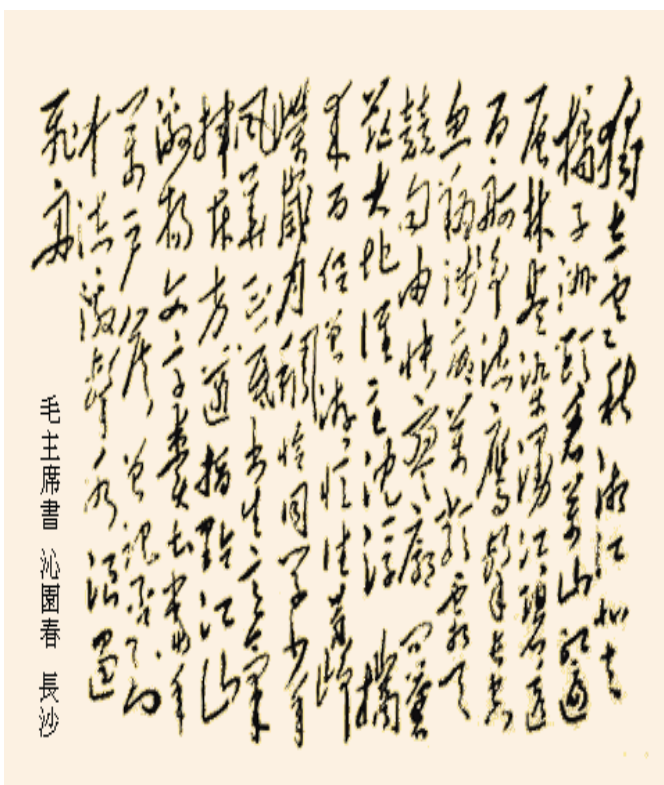 獨立寒秋湘江北去
橘子洲頭看萬山紅遍
層林盡染漫江碧透
百舸爭流鷹擊長空
魚翔淺底萬類霜天
競自由悵寥廓問蒼
茫大地誰主沈浮 攜
來百侶曾游憶往昔崢
嶸歲月稠恰同學少年
風華正茂書生意氣
揮斥方遒指點江山
激揚文字糞土當年
萬户侯曾記否到
中流擊水浪遏
飛舟
毛主席書 沁園春 長沙